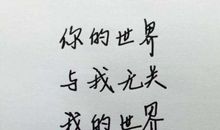 你的世界
与我无关
我的世界